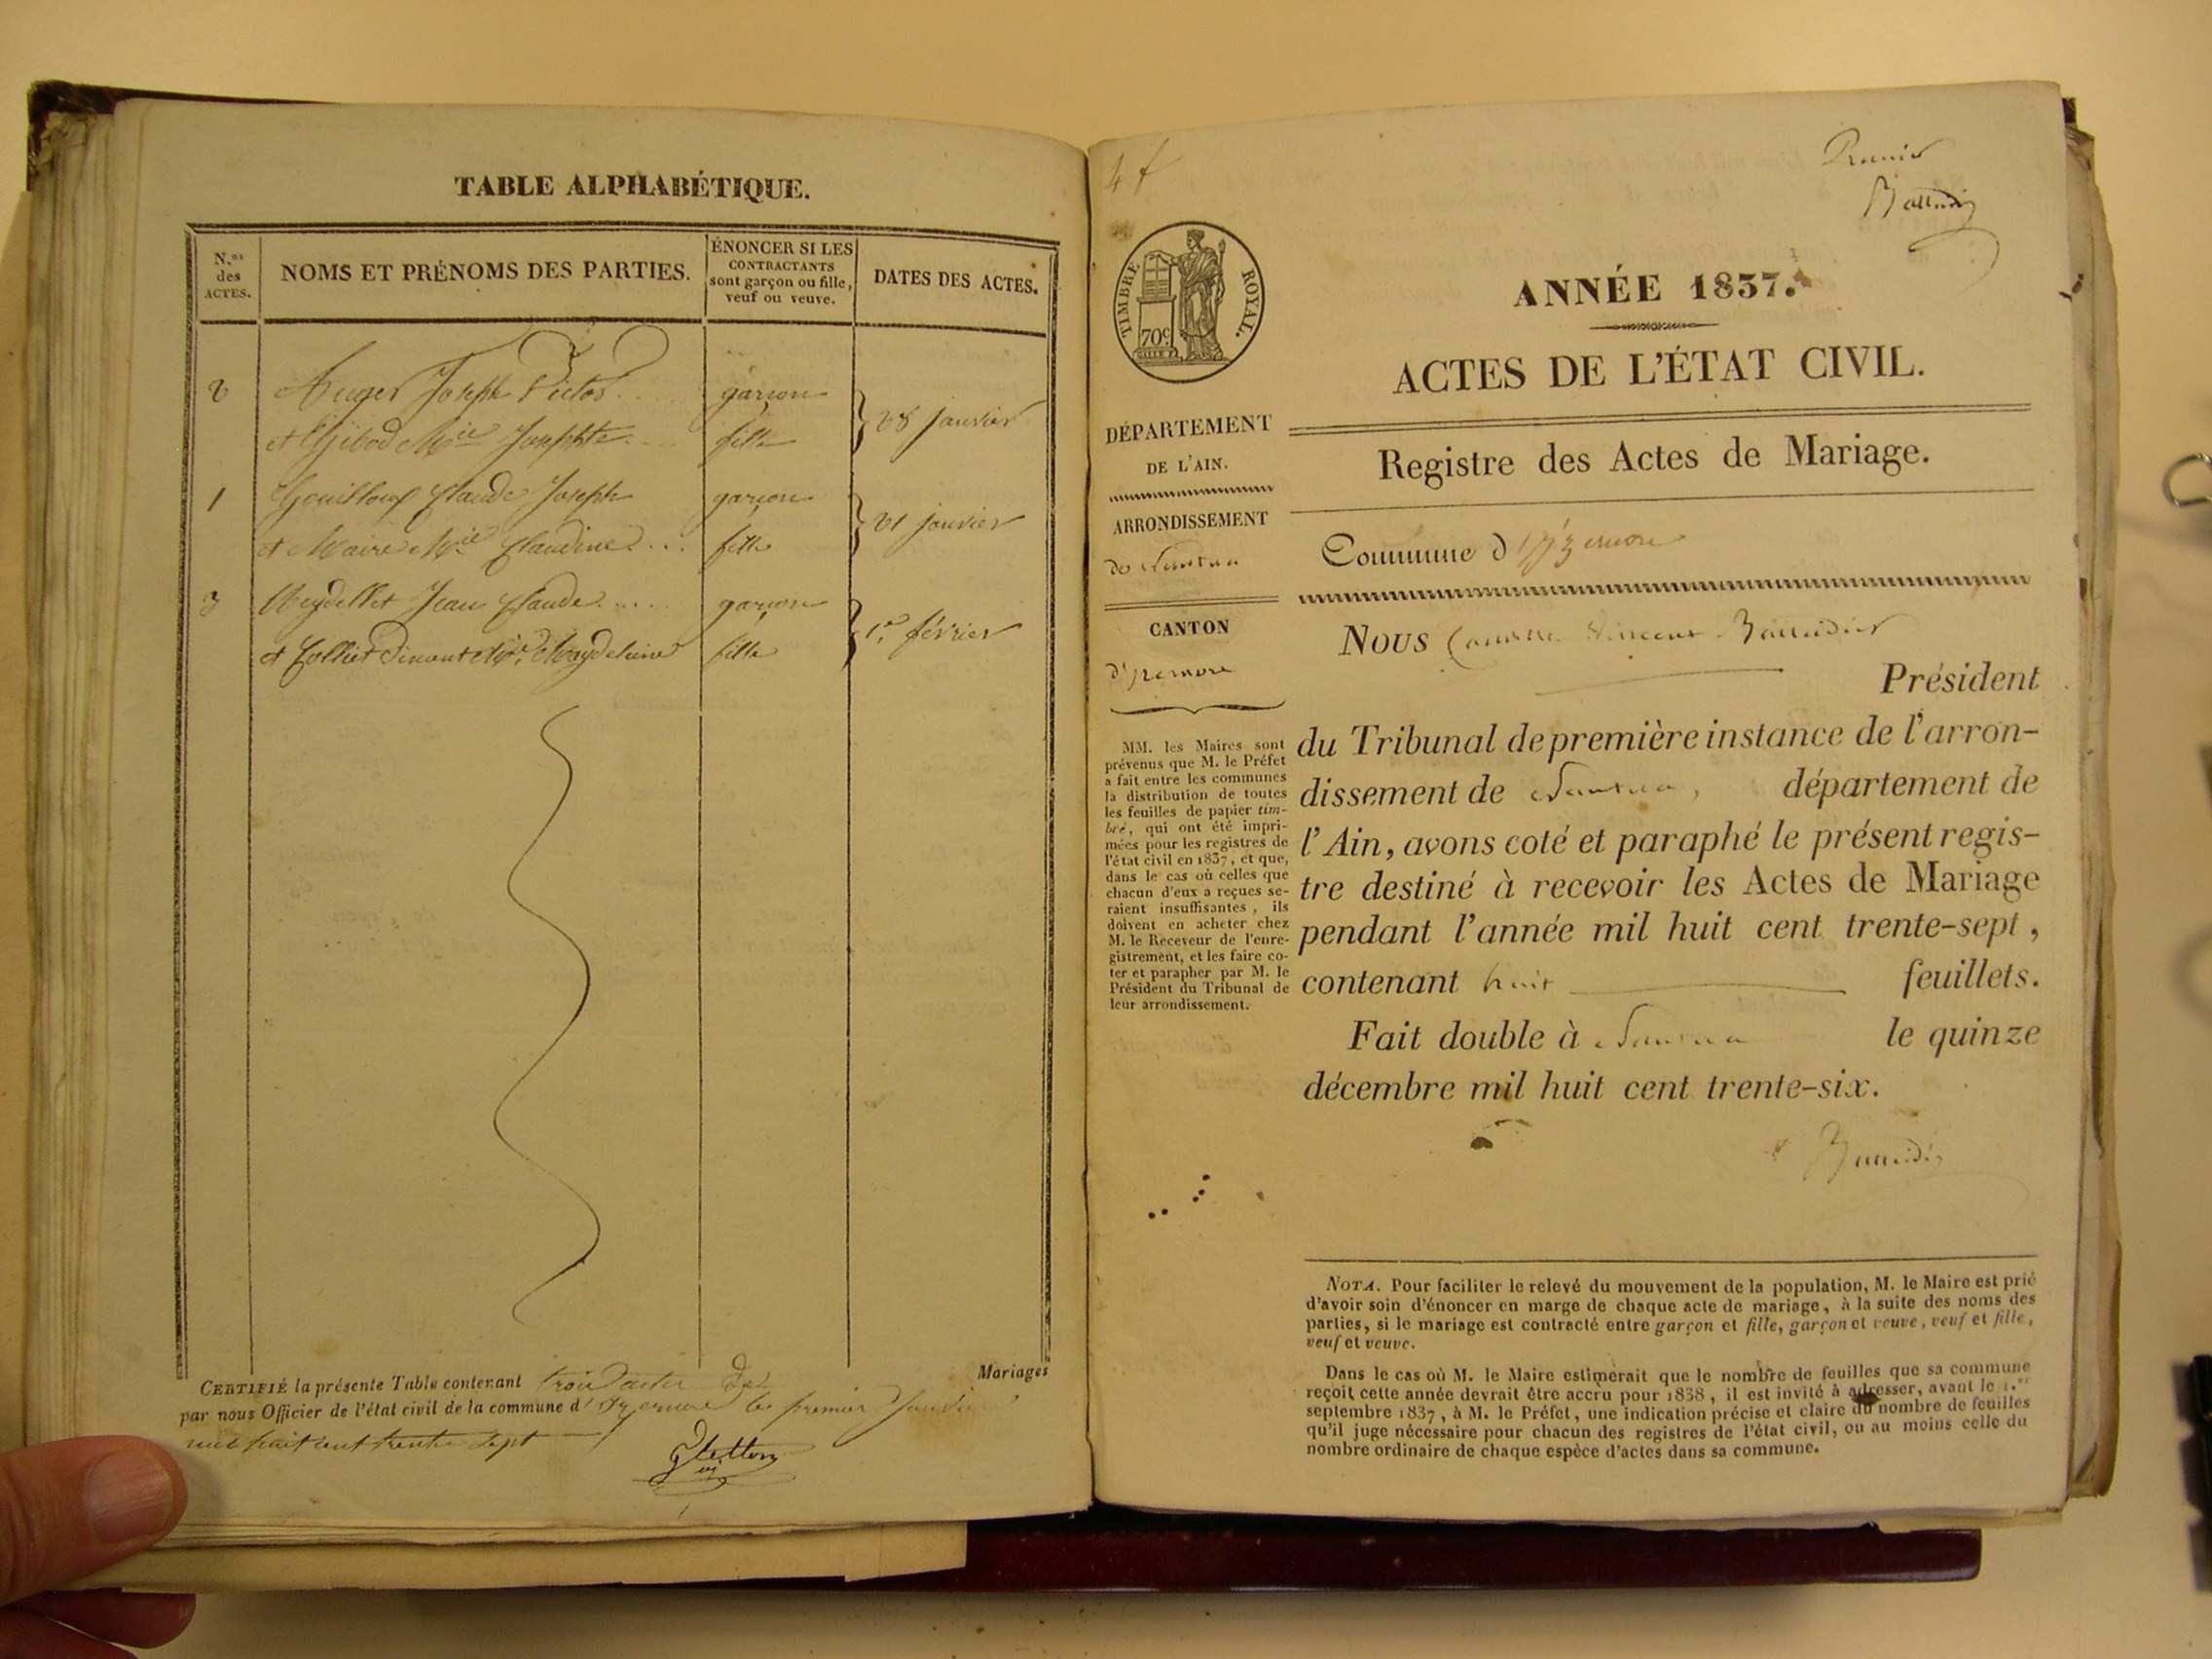 TABLE ALPHABÉTIQUE.
N.os des ACTES.
NOMS ET PRÉNOMS DES PARTIES.
ÉNONCER SI LES
CONTRACTANTS
sont garçon ou fille,
veuf ou veuve.
DATES DES ACTES.
2 Auger Joseph Victor garçon
et Mie Josephte fille
28 janvier
1 Gouilloux Claude Joseph garçon
et Maire Mie Claudine fille
21 janvier
3 Reydellet Jean Claude garçon
et Magdelaine fille
1er février
CERTIFIÉ la présente Table contenant trois actes de Mariages
par nous Officier de l'état civil de la commune d'Izernore le premier Janvier
mil huit cent trente sept
4 f
Premier
TIMBRE ROYAL.
70c
ANNÉE 1837.
ACTES DE L'ÉTAT CIVIL.
Registre des Actes de Mariage.
DÉPARTEMENT
DE L'AIN.
ARRONDISSEMENT
de Nantua
CANTON
d'Izernore
MM. les Maires sont
prévenus que M. le Préfet
a fait entre les communes
la distribution de toutes
les feuilles de papier tim-
bré, qui ont été impri-
mées pour les registres de
l'état civil en 1837, et que,
dans le cas où celles que
chacun d'eux a reçues se-
raient insuffisantes, ils
doivent en acheter chez
M. le Receveur de l'enre-
gistrement, et les faire co-
ter et parapher par M. le
Président du Tribunal de
leur arrondissement.
Commune d'Izernore
Nous Vincent
Président
du Tribunal de première instance de l'arron-
dissement de Nantua, département de
l'Ain, avons coté et paraphé le présent regis-
tre destiné à recevoir les Actes de Mariage
pendant l'année mil huit cent trente-sept,
contenant huit feuillets.
Fait double à Nantua le quinze
décembre mil huit cent trente-six.
NOTA. Pour faciliter le relevé du mouvement de la population, M. le Maire est prié
d'avoir soin d'énoncer en marge de chaque acte de mariage, à la suite des noms des
parties, si le mariage est contracté entre garçon et fille, garçon et veuve, veuf et fille,
veuf et veuve.
Dans le cas où M. le Maire estimerait que le nombre de feuilles que sa commune
reçoit cette année devrait être accru pour 1838, il est invité à adresser, avant le 1.er
septembre 1837, à M. le Préfet, une indication précise et claire du nombre de feuilles
qu'il juge nécessaire pour chacun des registres de l'état civil, ou au moins celle du
nombre ordinaire de chaque espèce d'actes dans sa commune.